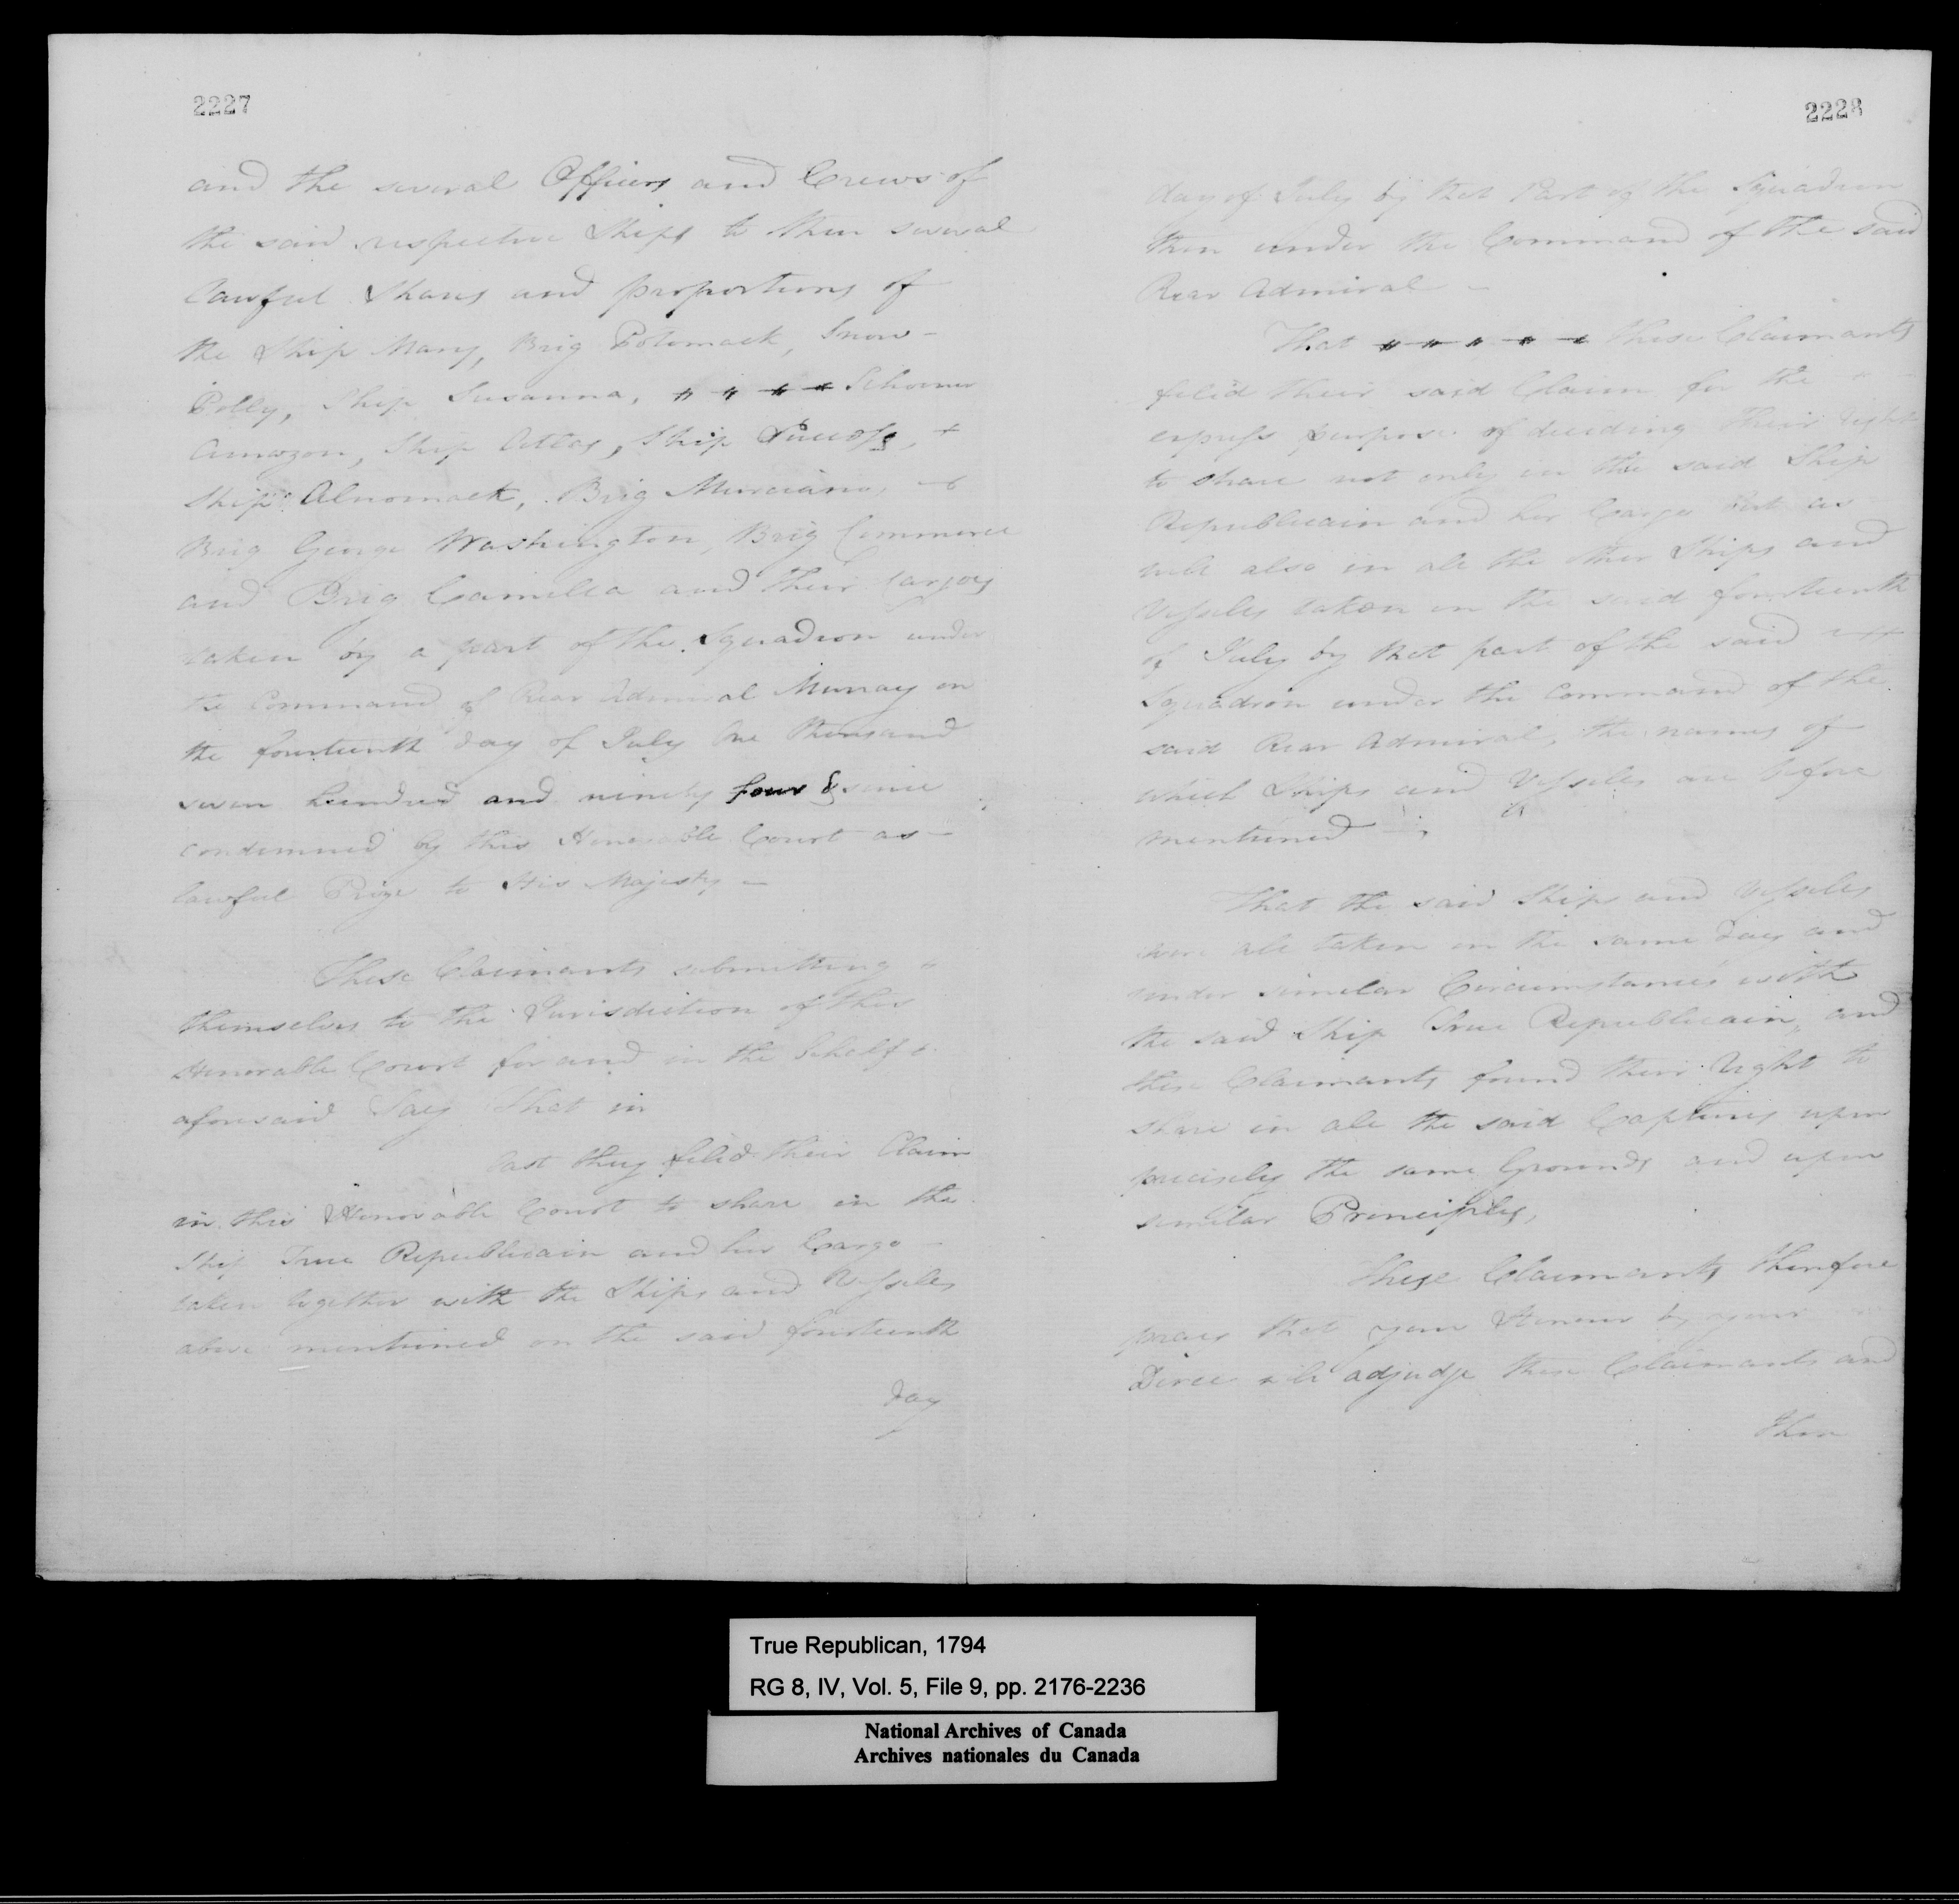 2227
and the several Officers and Crews of
the said respective Ships to their several
lawful Shares and proportions of
the Ship Mary, Brig Potomack, Snow
Polly, Ship Susanna, Schooner
Amazon, Ship Atlas, Ship Success,
Ship Alnomack, Brig Murciano,
Brig George Washington, Brig Commerce
and Brig Camilla and their Cargoes
taken by a part of the Squadron under
the Command of Rear Admiral Murray on
the fourteenth day of July One thousand
seven hundred and ninety four & since
condemned by this Honorable Court as
lawful Prize to His Majesty
These Claimants submitting
themselves to the Jurisdiction of this
Honorable Court for and in the behalf
aforesaid Say That in
last they filed their Claim
in this Honorable Court to share in the
Ship True Republicain and her Cargo
taken together with the Ships and Vessels
above mentioned on the said fourteenth
day
2228
day of July by that Part of the Squadron
then under the Command of the said
Rear Admiral
That these Claimants
filed their said Claim for the
express purpose of deciding their right
to share not only in the said Ship
Republicain and her Cargo but as
well also in all the other Ships and
Vessels taken on the said fourteenth
of July by that part of the said
Squadron under the Command of the
said Rear Admiral, the names of
which Ships and Vessels are before
mentioned
That the said Ships and Vessels
were all taken on the same day and
under similar Circumstances with
the said Ship True Republicain, and
these Claimants found their Right to
share in all the said Captures upon
precisely the same Grounds and upon
similar Principles,
These Claimants therefore
pray that your Honour by your
Decree will adjudge these Claimants and
True Republican, 1794
RG 8, IV, Vol. 5, File 9, pp. 2176-2236
National Archives of Canada
Archives nationales du Canada